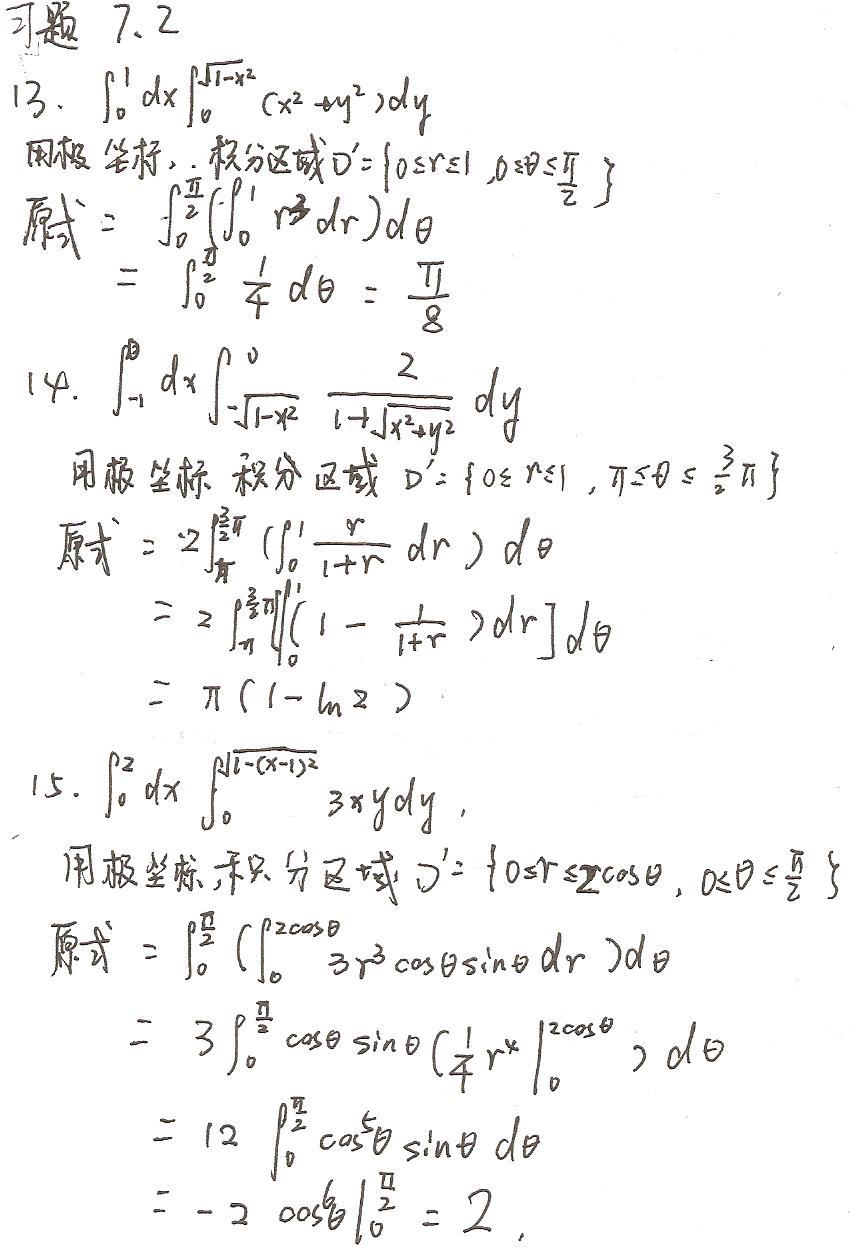 习题 7.2
13. ∫_0^1 dx ∫_0^{√(1-x²)} (x²+y²)dy
用极坐标, 积分区域D'={0≤r≤1, 0≤θ≤π/2}
原式 = ∫_0^{π/2} (∫_0^1 r³ dr) dθ
= ∫_0^{π/2} 1/4 dθ = π/8
14. ∫_{-1}^0 dx ∫_{-√(1-x²)}^0 2/(1+√(x²+y²)) dy
用极坐标 积分区域 D'={0≤r≤1, π≤θ≤3/2 π}
原式 = 2∫_π^{3/2 π} (∫_0^1 r/(1+r) dr) dθ
= 2∫_π^{3/2 π} [∫_0^1 (1 - 1/(1+r)) dr] dθ
= π(1-ln2)
15. ∫_0^2 dx ∫_0^{√(1-(x-1)²)} 3xydy.
用极坐标, 积分区域 D'={0≤r≤2cosθ, 0≤θ≤π/2}
原式 = ∫_0^{π/2} (∫_0^{2cosθ} 3r³cosθsinθ dr) dθ
= 3∫_0^{π/2} cosθ sinθ (1/4 r⁴ |_0^{2cosθ}) dθ
= 12 ∫_0^{π/2} cos⁵θ sinθ dθ
= -2 cos⁶θ |_0^{π/2} = 2.